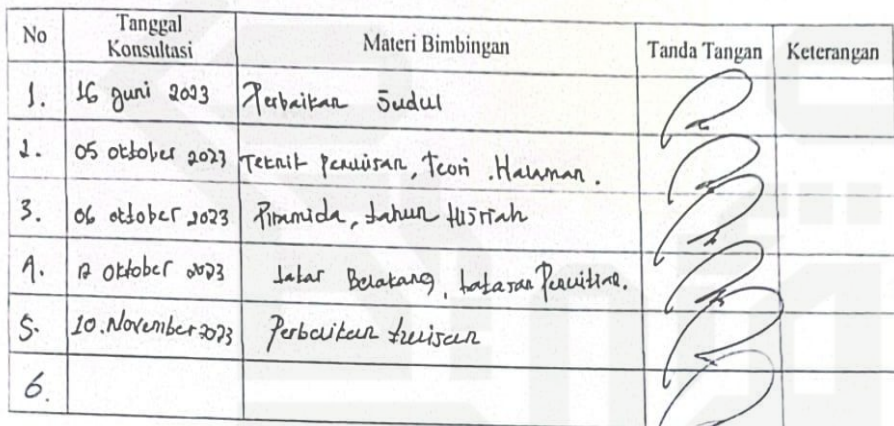 No Tanggal Konsultasi Materi Bimbingan Tanda Tangan Keterangan
1. 16 Juni 2023 Perbaikan Judul
2. 05 oktober 2023 Teknik penulisan, Teori . Halaman .
3. 06 oktober 2023 Piramida, tahun Hijriah
4. 12 oktober 2023 Latar Belakang, batasan Penelitian.
5. 10. November 2023 Perbaikan tulisan
6.